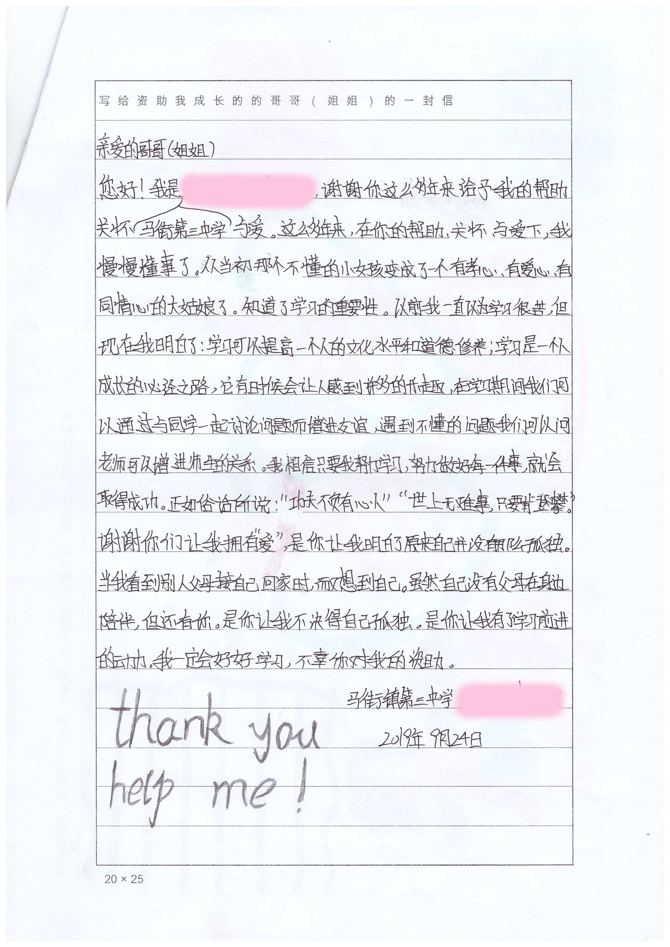 写给资助我成长的的哥哥(姐姐)的一封信
亲爱的哥哥(姐姐)
您好!我是 ,谢谢你这么多年来给予我的帮助
关怀 马街第三中学 与爱。这么多年来,在你的帮助、关怀与爱下,我
慢慢懂事了。从当初那个不懂的小女孩变成了一个有孝心、有爱心、有
同情心的大姑娘了。知道了学习的重要性。以前我一直以为学习很苦,但
现在我明白了:学习可以提高一个人的文化水平和道德修养;学习是一个人
成长的必经之路,它有时候会让人感到许多的乐趣,在学习期间我们可
以通过与同学一起讨论问题而增进友谊,遇到不懂的问题我们可以问
老师可以增进师生的关系。我相信只要我努力学习,努力做好每一件事,就会
取得成功。正如俗话所说:“功夫不负有心人”“世上无难事,只要肯登攀。”
谢谢你们让我拥有“爱”,是你让我明白了原来自己并没有那么孤独。
当我看到别人父母接自己回家时,而又想到自己。虽然自己没有父母在身边
陪伴,但还有你。是你让我不决得自己孤独。是你让我有了学习前进
的动力。我一定会好好学习,不辜你对我的资助。
马街镇第三中学
2019年9月24日
thank you
help me!
20×25